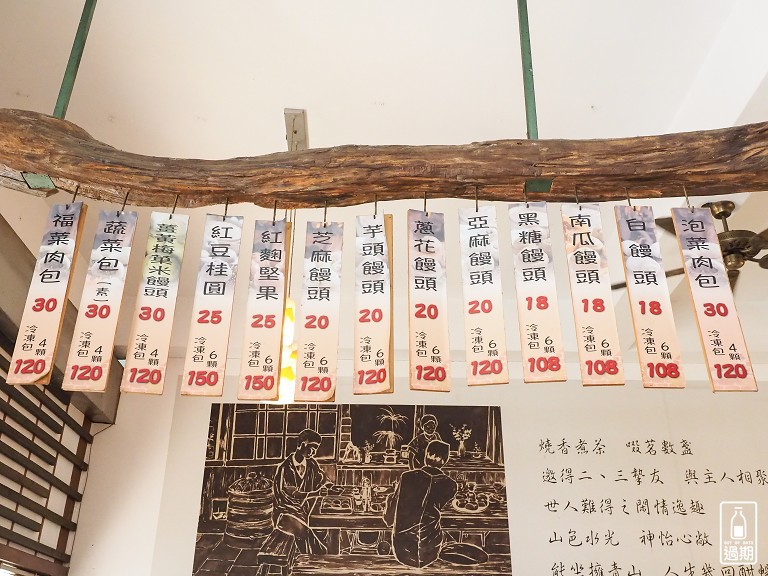 福菜肉包
30
冷凍包 4顆
120
蔬菜包(素)
30
冷凍包 4顆
120
薑黃梅草米饅頭
30
冷凍包 4顆
120
紅豆桂圓
25
冷凍包 6顆
150
紅麴堅果
25
冷凍包 6顆
150
芝麻饅頭
20
冷凍包 6顆
120
芋頭饅頭
20
冷凍包 6顆
120
蔥花饅頭
20
冷凍包 6顆
120
亞麻饅頭
20
冷凍包 6顆
120
黑糖饅頭
18
冷凍包 6顆
108
南瓜饅頭
18
冷凍包 6顆
108
白饅頭
18
冷凍包 6顆
108
泡菜肉包
30
冷凍包 4顆
120
燒香煮茶 啜茗數盞
邀得二、三摯友 與主人相聚
世人難得之閒情逸趣
山色水光 神怡心敞
能坐擁青山 人生幾回酣暢
OUT OF DATE
過期